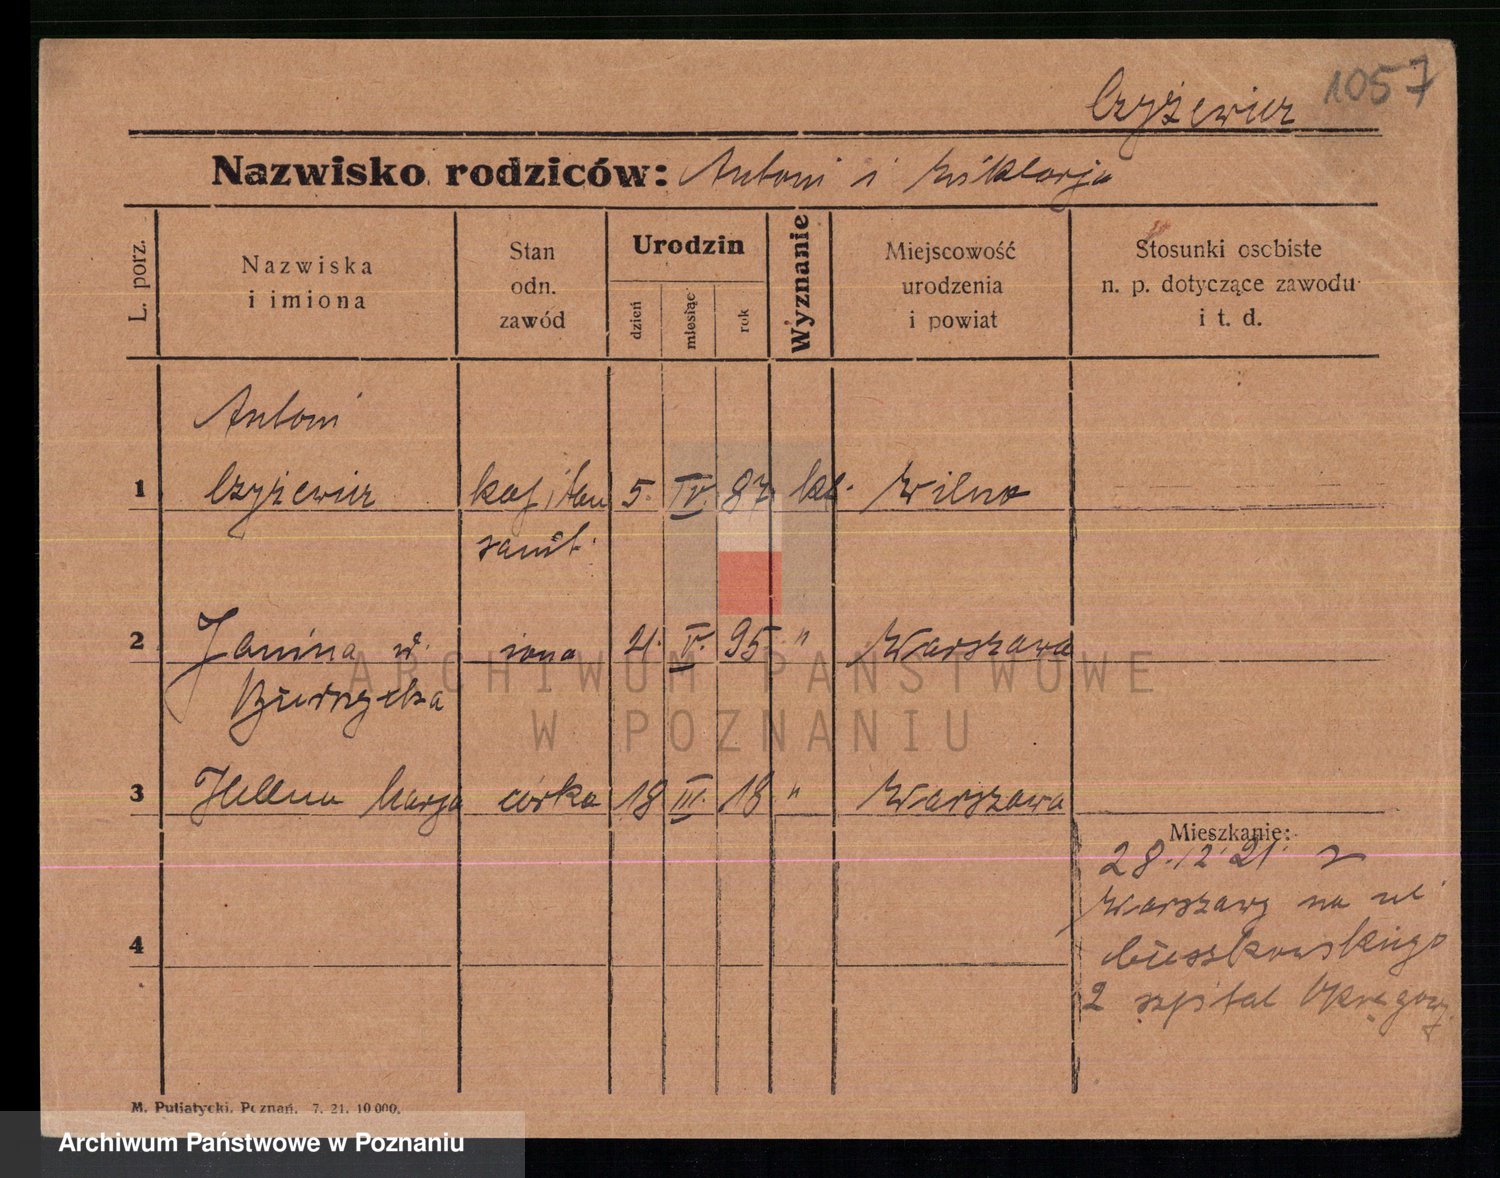 1057
Czyżewicz
Nazwisko rodziców: Antoni i Wiktorja
L. porz.
Nazwiska
i imiona
Stan
odn.
zawód
Urodzin
dzień
miesiąc
rok
Wyznanie
Miejscowość
urodzenia
i powiat
Stosunki osobiste
n. p. dotyczące zawodu
i t. d.
Antoni
1 Czyżewicz kapitan 5. IV. 87 kt. Wilno
sanit.
2 Janina ż. żona 4. V. 95 " Warszawa
3 Helena Marja córka 18 III. 18 " Warszawa
Mieszkanie:
28.12.21. z
Warszawy na ul
2 szpital Okręgowy
4
M. Putiatycki, Poznań. 7. 21. 10 000.
ARCHIWUM PAŃSTWOWE
W POZNANIU
Archiwum Państwowe w Poznaniu